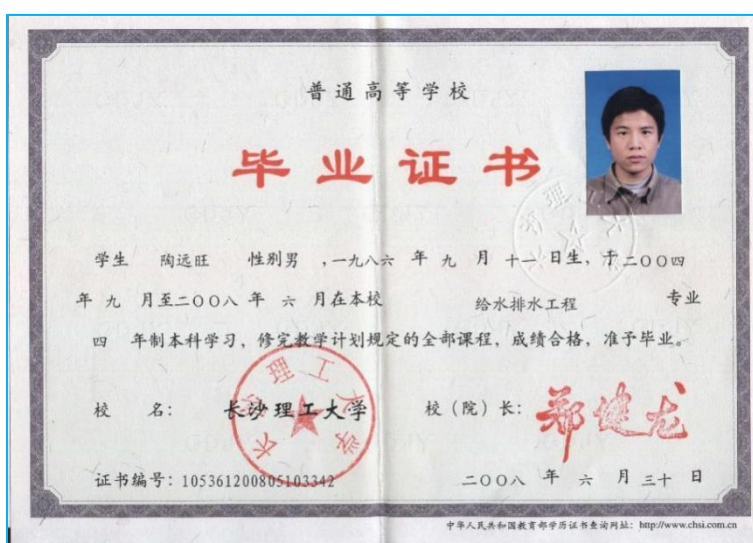 普通高等学校
毕业证书
学生 陶远旺 性别男 ,一九八六 年 九 月 十一 日生, 于二〇〇四
年 九 月至二〇〇八 年 六 月在本校 给水排水工程 专业
四 年制本科学习, 修完教学计划规定的全部课程, 成绩合格, 准予毕业。
校 名: 长沙理工大学 校 (院) 长: 郑健龙
长沙理工大学
证书编号: 105361200805103342 二〇〇八 年 六 月 三十 日
中华人民共和国教育部学历证书查询网址: http://www.chsi.com.cn